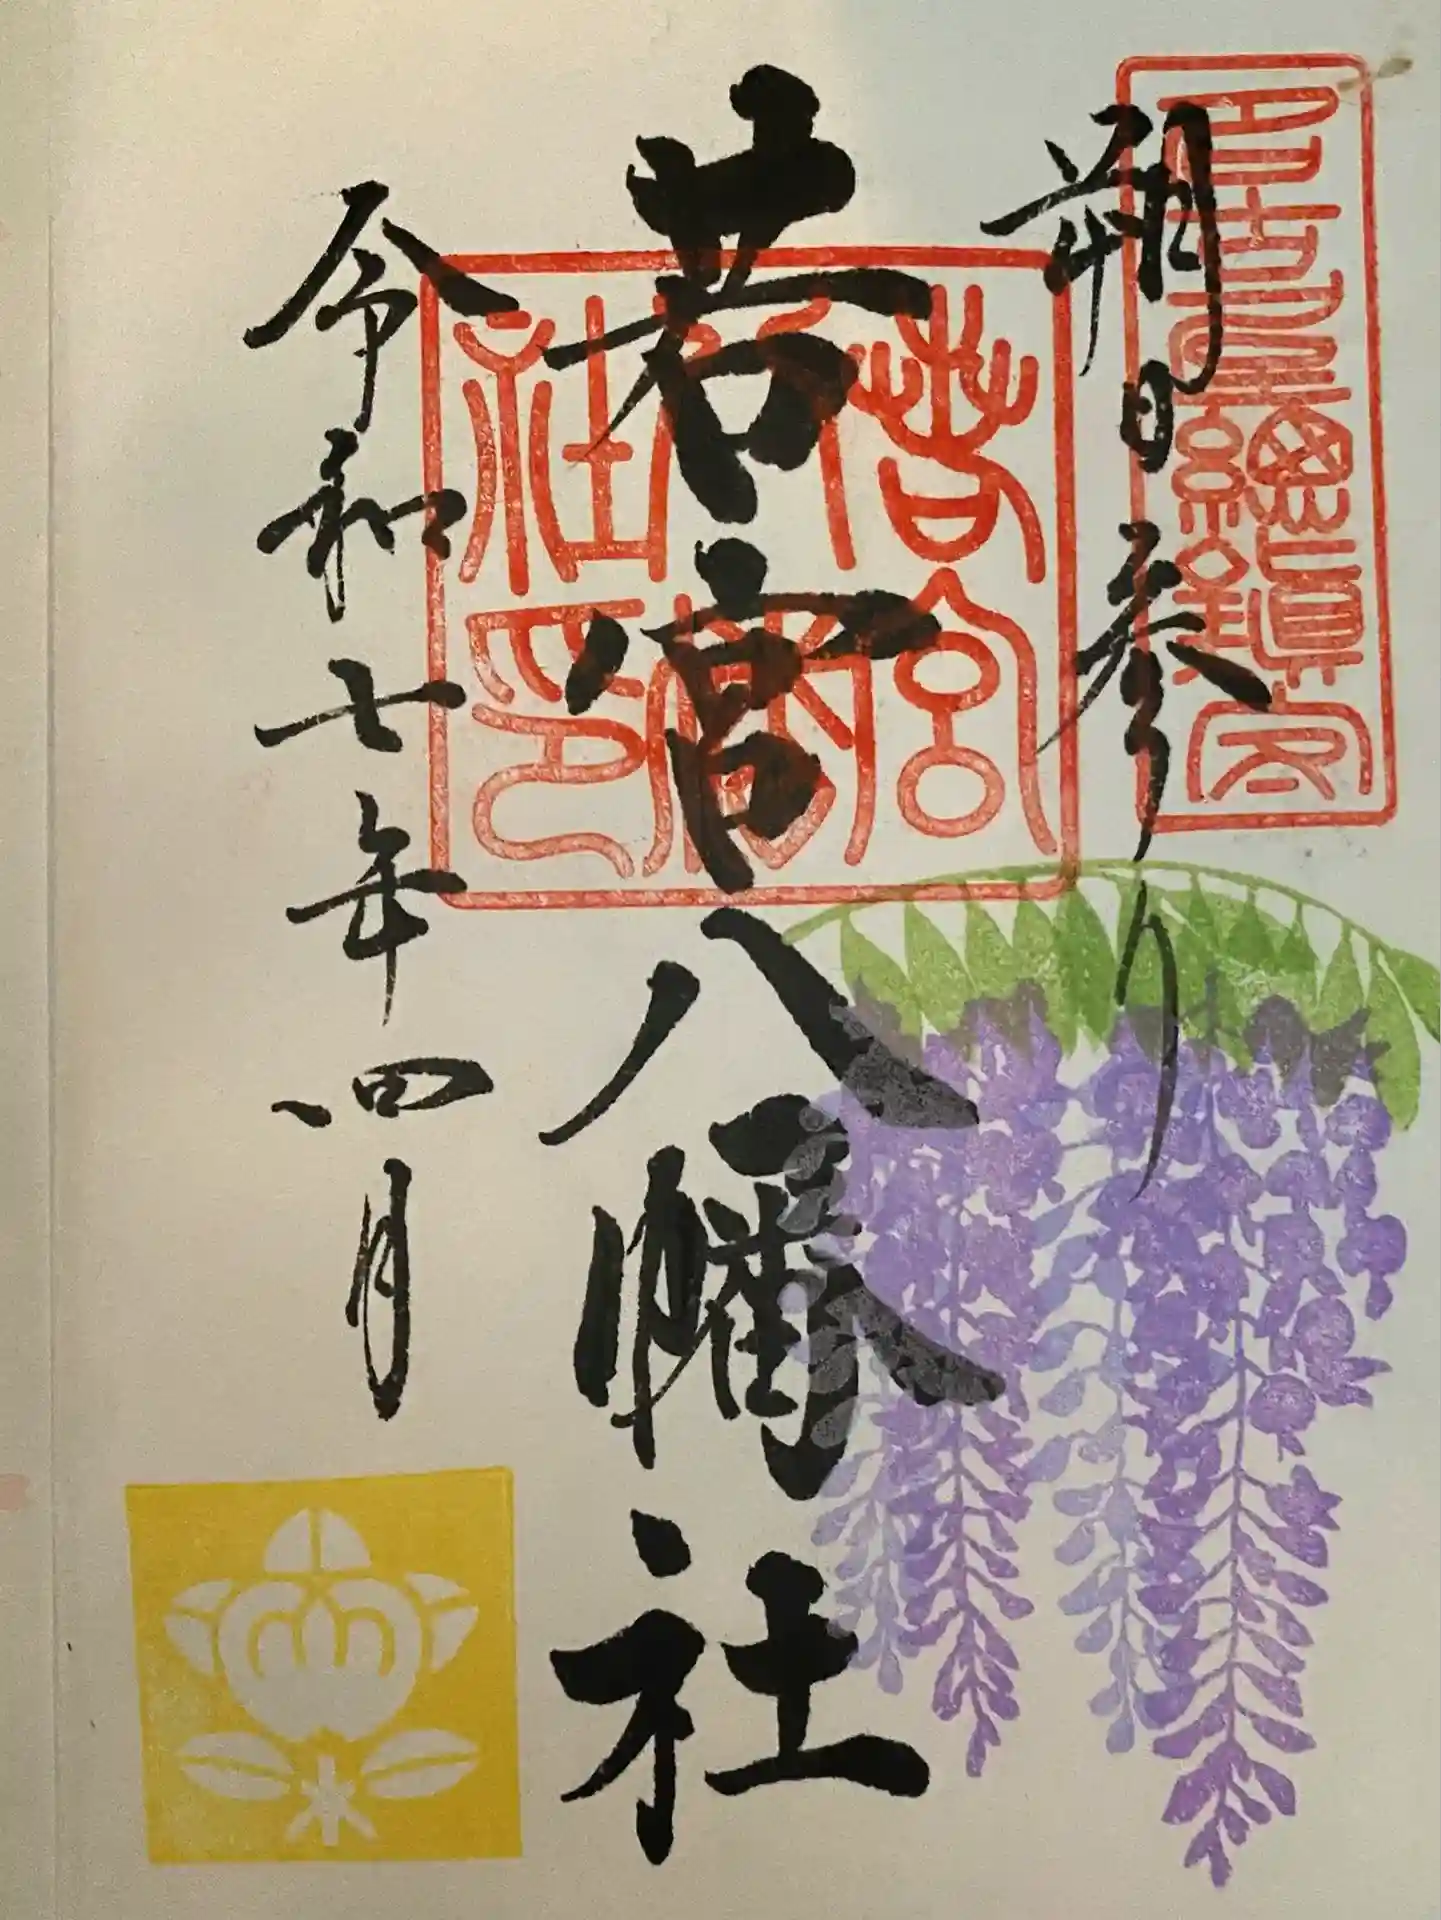 名古屋總鎭守
朔日参り
若宮八幡社
若宮
八幡
社印
令和七年四月